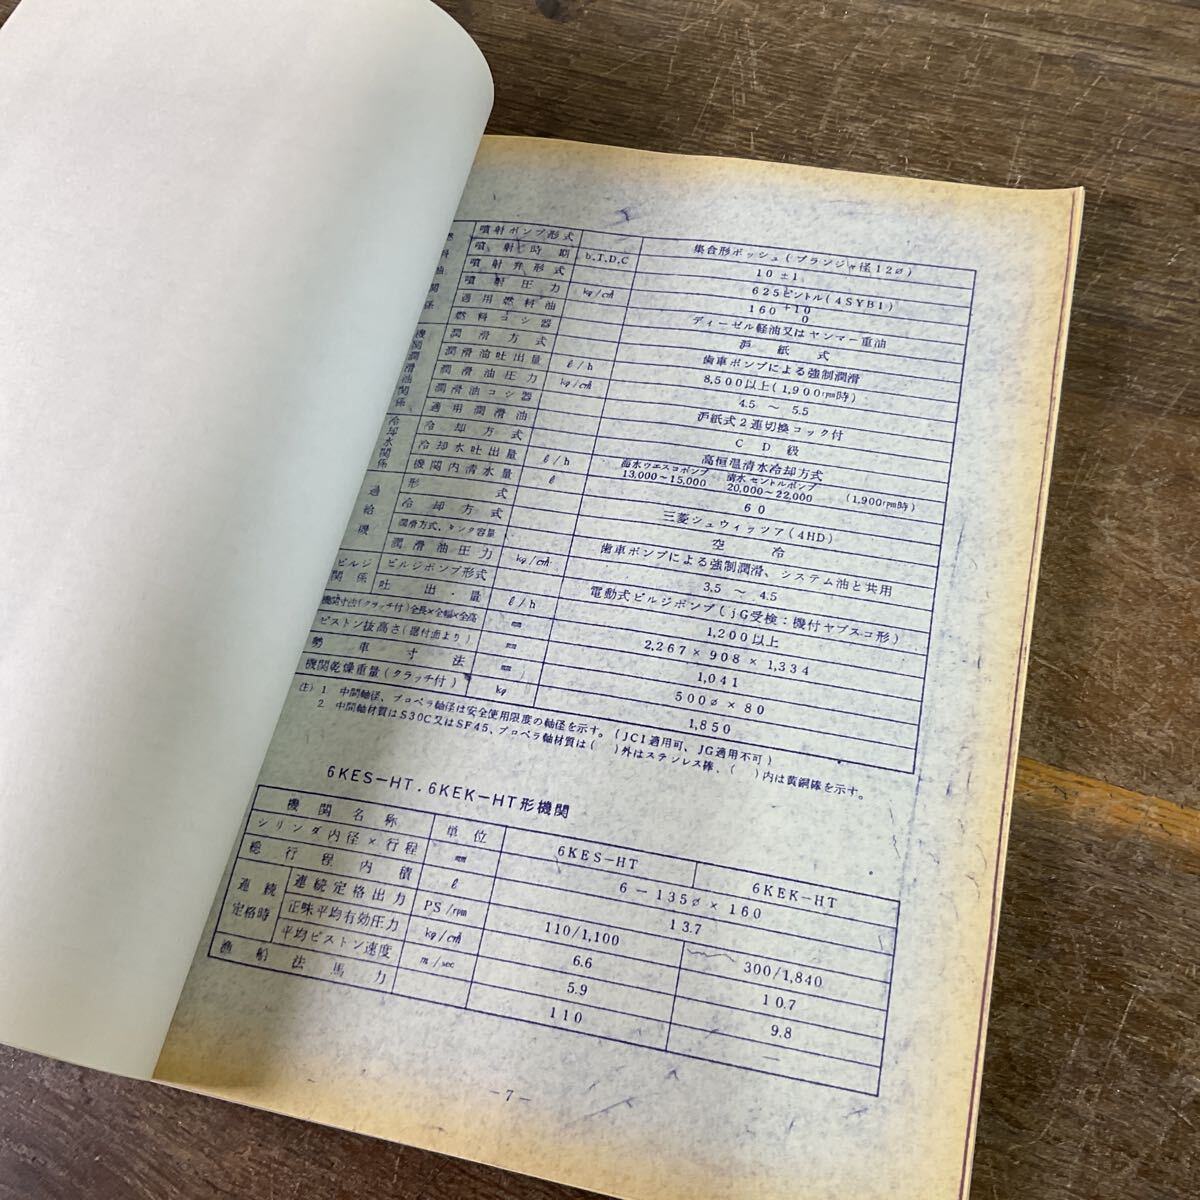 噴射ポンプ形式 集合形ボッシュ(プランジャ径12ø)
噴射時期 b.T.D.C 10±1
噴射弁形式 625ピントル(4SYB1)
噴射圧力 kg/c㎡ 160 +10 0
適用燃料油 ディーゼル軽油又はヤンマー重油
燃料コシ器 沪紙式
機関潤滑油関係
潤滑方式 歯車ポンプによる強制潤滑
潤滑油吐出量 ℓ/h 8,500以上(1,900rpm時)
潤滑油圧力 kg/c㎡ 4.5 ~ 5.5
潤滑油コシ器 沪紙式2連切換コック付
適用潤滑油 CD級
冷却水関係
冷却方式 高恒温清水冷却方式
冷却水吐出量 ℓ/h 海水ウエスコポンプ 13,000~15,000 清水セントルポンプ 20,000~22,000 (1,900rpm時)
機関内清水量 ℓ 60
過給機
形式 三菱シュウィッツア(4HD)
冷却方式 空冷
潤滑方式、タンク容量 歯車ポンプによる強制潤滑、システム油と共用
潤滑油圧力 kg/c㎡ 3.5 ~ 4.5
ビルジ関係
ビルジポンプ形式 電動式ビルジポンプ(jG受検:機付ヤブスコ形)
吐出量 ℓ/h 1,200以上
機関寸法(クラッチ付)全長×全幅×全高 ㎜ 2,267×908×1,334
ピストン抜高さ(据付面より) ㎜ 1,041
勢車寸法 ㎜ 500ø×80
機関乾燥重量(クラッチ付) kg 1,850
注)1 中間軸径、プロペラ軸径は安全使用限度の軸径を示す。(JCI適用可、JG適用不可)
2. 中間軸材質はS30C又はSF45、プロペラ軸材質は( )外はステンレス棒、( )内は黄銅棒を示す。
6KES-HT.6KEK-HT形機関
機関名称 単位 6KES-HT 6KEK-HT
シリンダ内径×行程 ㎜ 6-135ø×160
総行程内積 ℓ 13.7
連続定格時
連続定格出力 PS/rpm 110/1,100 300/1,840
正味平均有効圧力 kg/c㎡ 6.6 10.7
平均ピストン速度 m/sec 5.9 9.8
漁船法馬力 110 —
-7-